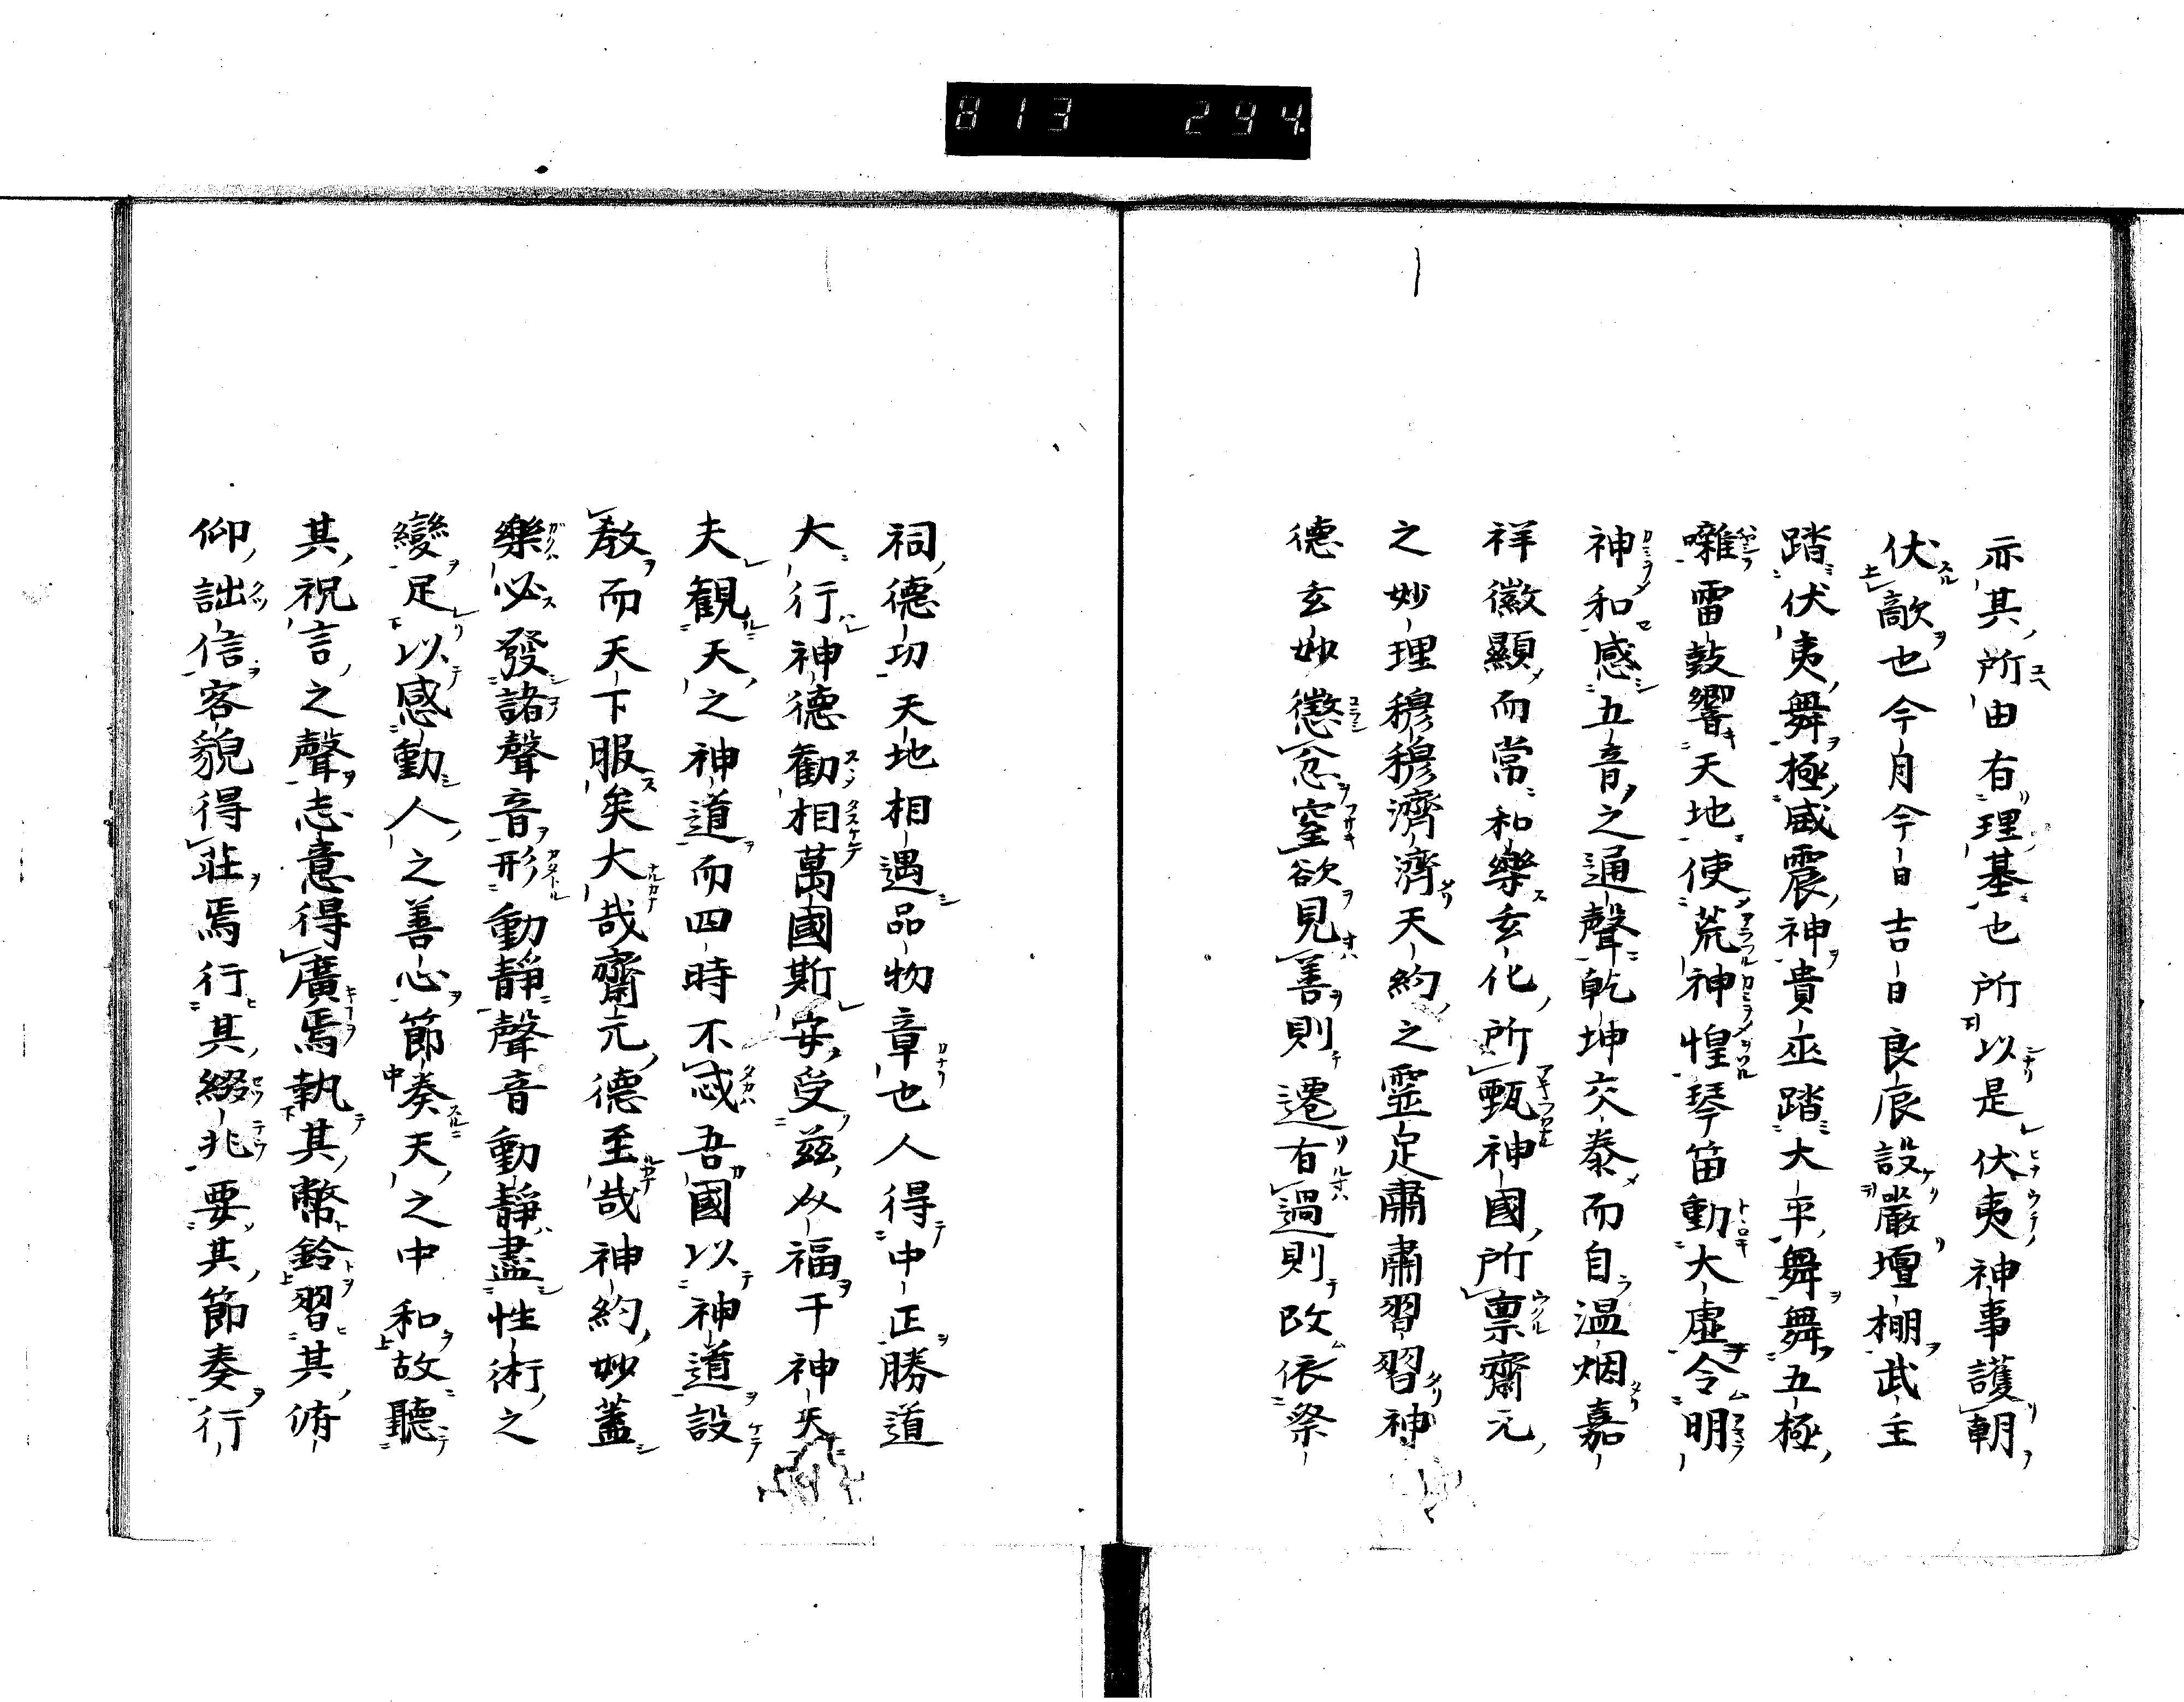 813 294
示其所由有理基也所以是伏夷神事護朝
伏敵也今月今日吉日良辰設嚴壇棚武主
踏伏夷舞極威震神貴巫踏大平舞舞五極
囃雷鼓響天地使荒神惶琴笛動大虛令明
神和感五音之通聲乾坤交泰而自温烟嘉
祥徽顯而常和樂玄化所甄神國所禀齋元
之妙理穆穆濟濟天約之靈足肅肅習習神
德玄妙懲忿窒欲見善則遷有過則改依祭
祠德功天地相遇品物章也人得中正勝道
大行神德勸相萬國斯安受茲介福于神天
夫観天之神道而四時不忒吾國以神道設
教而天下服矣大哉齋元德至哉神約妙蓋
樂必發諸聲音形動靜聲音動靜盡性術之
變足以感動人之善心節奏天之中和故聽
其祝言之聲志意得廣焉執其幣鈴習其俯
仰詘信客貌得莊焉行其綴兆要其節奏行